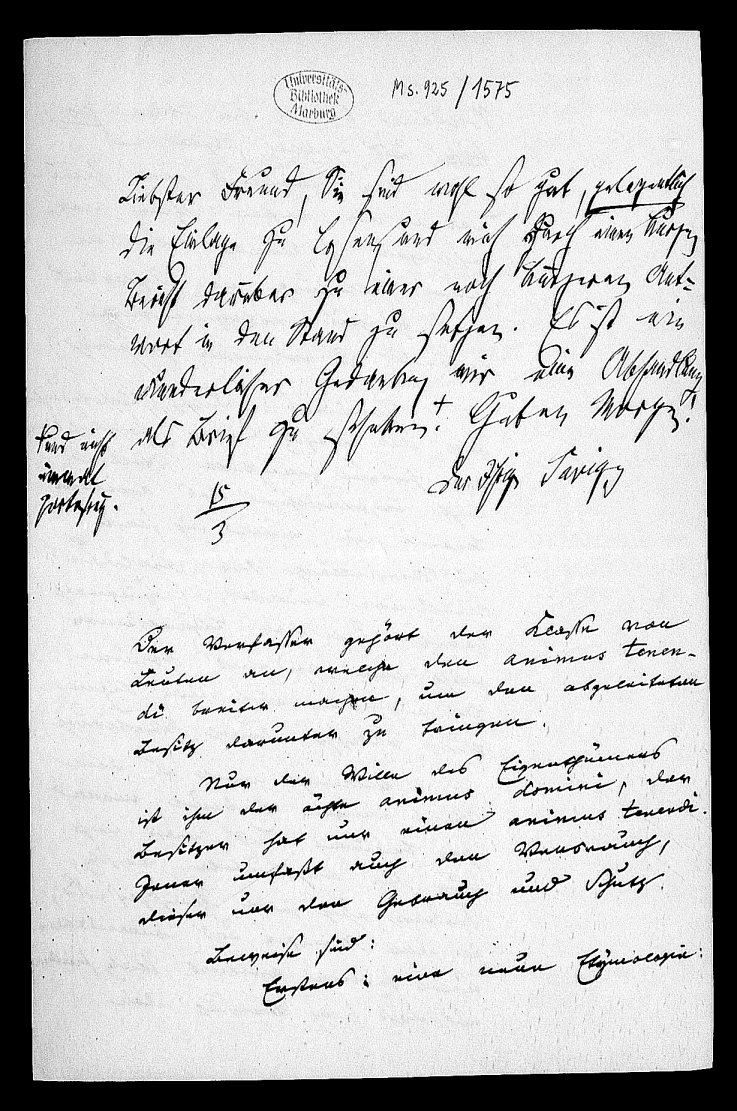 Universitäts-
Bibliothek
Marburg
Ms. 925/1575
Liebster Freund, Sie sind wohl so gut, gelegentlich
die Einlage zu lesen, und mich durch einen kurzen
Bericht darüber zu einer noch kürzeren Ant-
wort in den Stand zu setzen. Es ist ein
wunderlicher Gedanke, mir eine Abhandlung
als Brief zu schreiben! Guten Morgen!
und nicht
Der Ihrige Savigny
15
3
Der Verfasser gehört der Klasse von
Leuten an, welche den animus tenen-
di breiter machen, um den abgeleiteten
Besitz darunter zu bringen.
Nur der Wille des Eigenthümers
ist ihm der ächte animus domini, der
Besitzer hat nur einen animus tenendi.
Jener umfaßt auch den Verbrauch,
dieser nur den Gebrauch und Schutz.
Beweise sind:
Erstens: eine neue Etymologie: